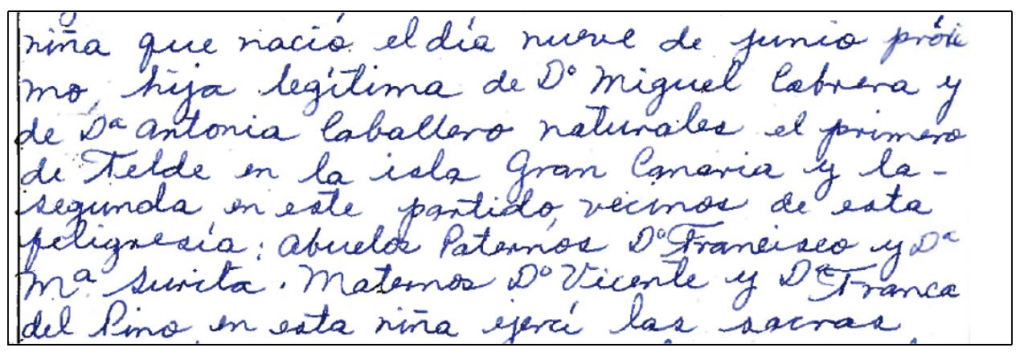 niña que nació el día nueve de junio próxi
mo, hija legítima de Dº Miguel Cabrera y
de Dª Antonia Caballero naturales el primero
de Telde en la isla Gran Canaria y la -
segunda en este partido, vecinos de esta
feligresía: Abuelos Paternos Dº Francisco y Dª
Mª Surita. Maternos Dº Vicente y Dª Franca
del Pino, en esta niña ejercí las sacras